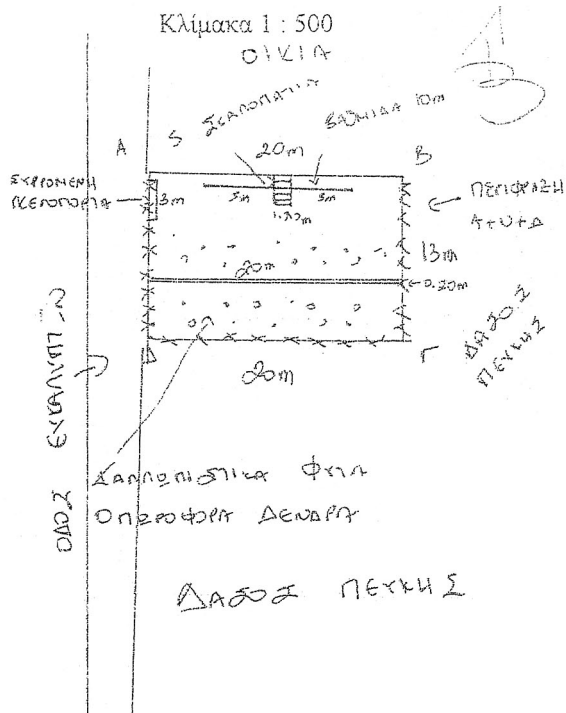 Κλίμακα 1 : 500
ΟΙΚΙΑ
ΣΚΑΛΟΠΑΤΙΑ
ΒΑΘΜΙΔΑ 10m
Α
5
20m
Β
ΣΥΡΡΟΜΕΝΗ
3m
5m
5m
1.20m
ΠΕΡΙΦΡΑΞΗ
Α+Υ+Δ
13m
20m
0.20m
Δ
Γ
20m
ΔΑΣΟΣ
ΠΕΥΚΗΣ
ΟΔΟΣ ΕΥΚΑΛΥΠΤΩΝ
ΚΑΛΛΩΠΙΣΤΙΚΑ ΦΥΤΑ
ΟΠΩΡΟΦΟΡΑ ΔΕΝΔΡΑ
ΔΑΣΟΣ ΠΕΥΚΗΣ